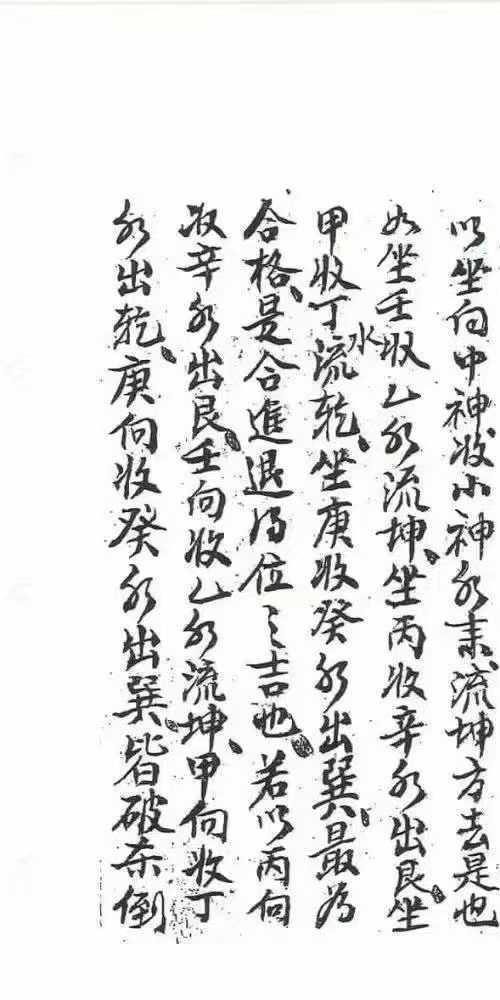 以坐向中神收小神水来流坤方去是也
如坐壬収乙水流坤坐丙收辛水出艮坐
甲收丁水流乾坐庚收癸水出巽最为
合格是合進退得位之吉也若以丙向
収辛水出艮壬向收乙水流坤甲向收丁
水出乾庚向收癸水出巽皆破禄倒